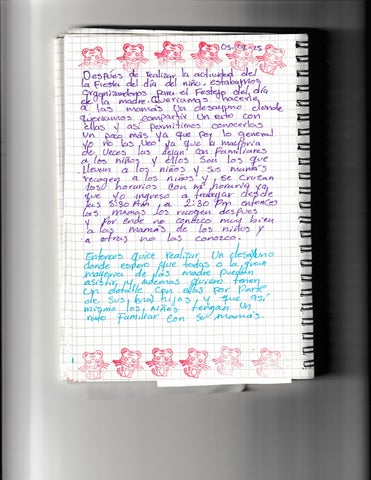 05-02-25
Despues de realizar la actividad del
la Fiesta del día del niño, estabamos
organizandonos para el Festejo del día
de la madre. Queriamos hacerle
a las mamas un desayuno donde
queriamos compartir un rato con
ellas y asi permitirnos conocerlas
un poco mas ya que por lo general
yo no las veo, ya que la mayoria
de veces las dejan con Familiares
a los niños y ellos son los que
llevan a los niños y sus mamas
recogen a los niños y se cruzan
los horarios con mi horario ya
que yo ingreso a trabajar desde
las 8:30 AM a 2:30 PM entonces
las mamas los recogen despues
y por ende no conozco muy bien
a las mamás de los niños y
a otras no las conozco.
Entonces quice realizar un desayuno
donde espero que todas o la gran
mayoria de las madre puedan
asistir y ademas quiero tener
un detalle con ellas por parte
de sus hijos, y que asi
mismo los niños tengan un
rato Familiar con su mamás.